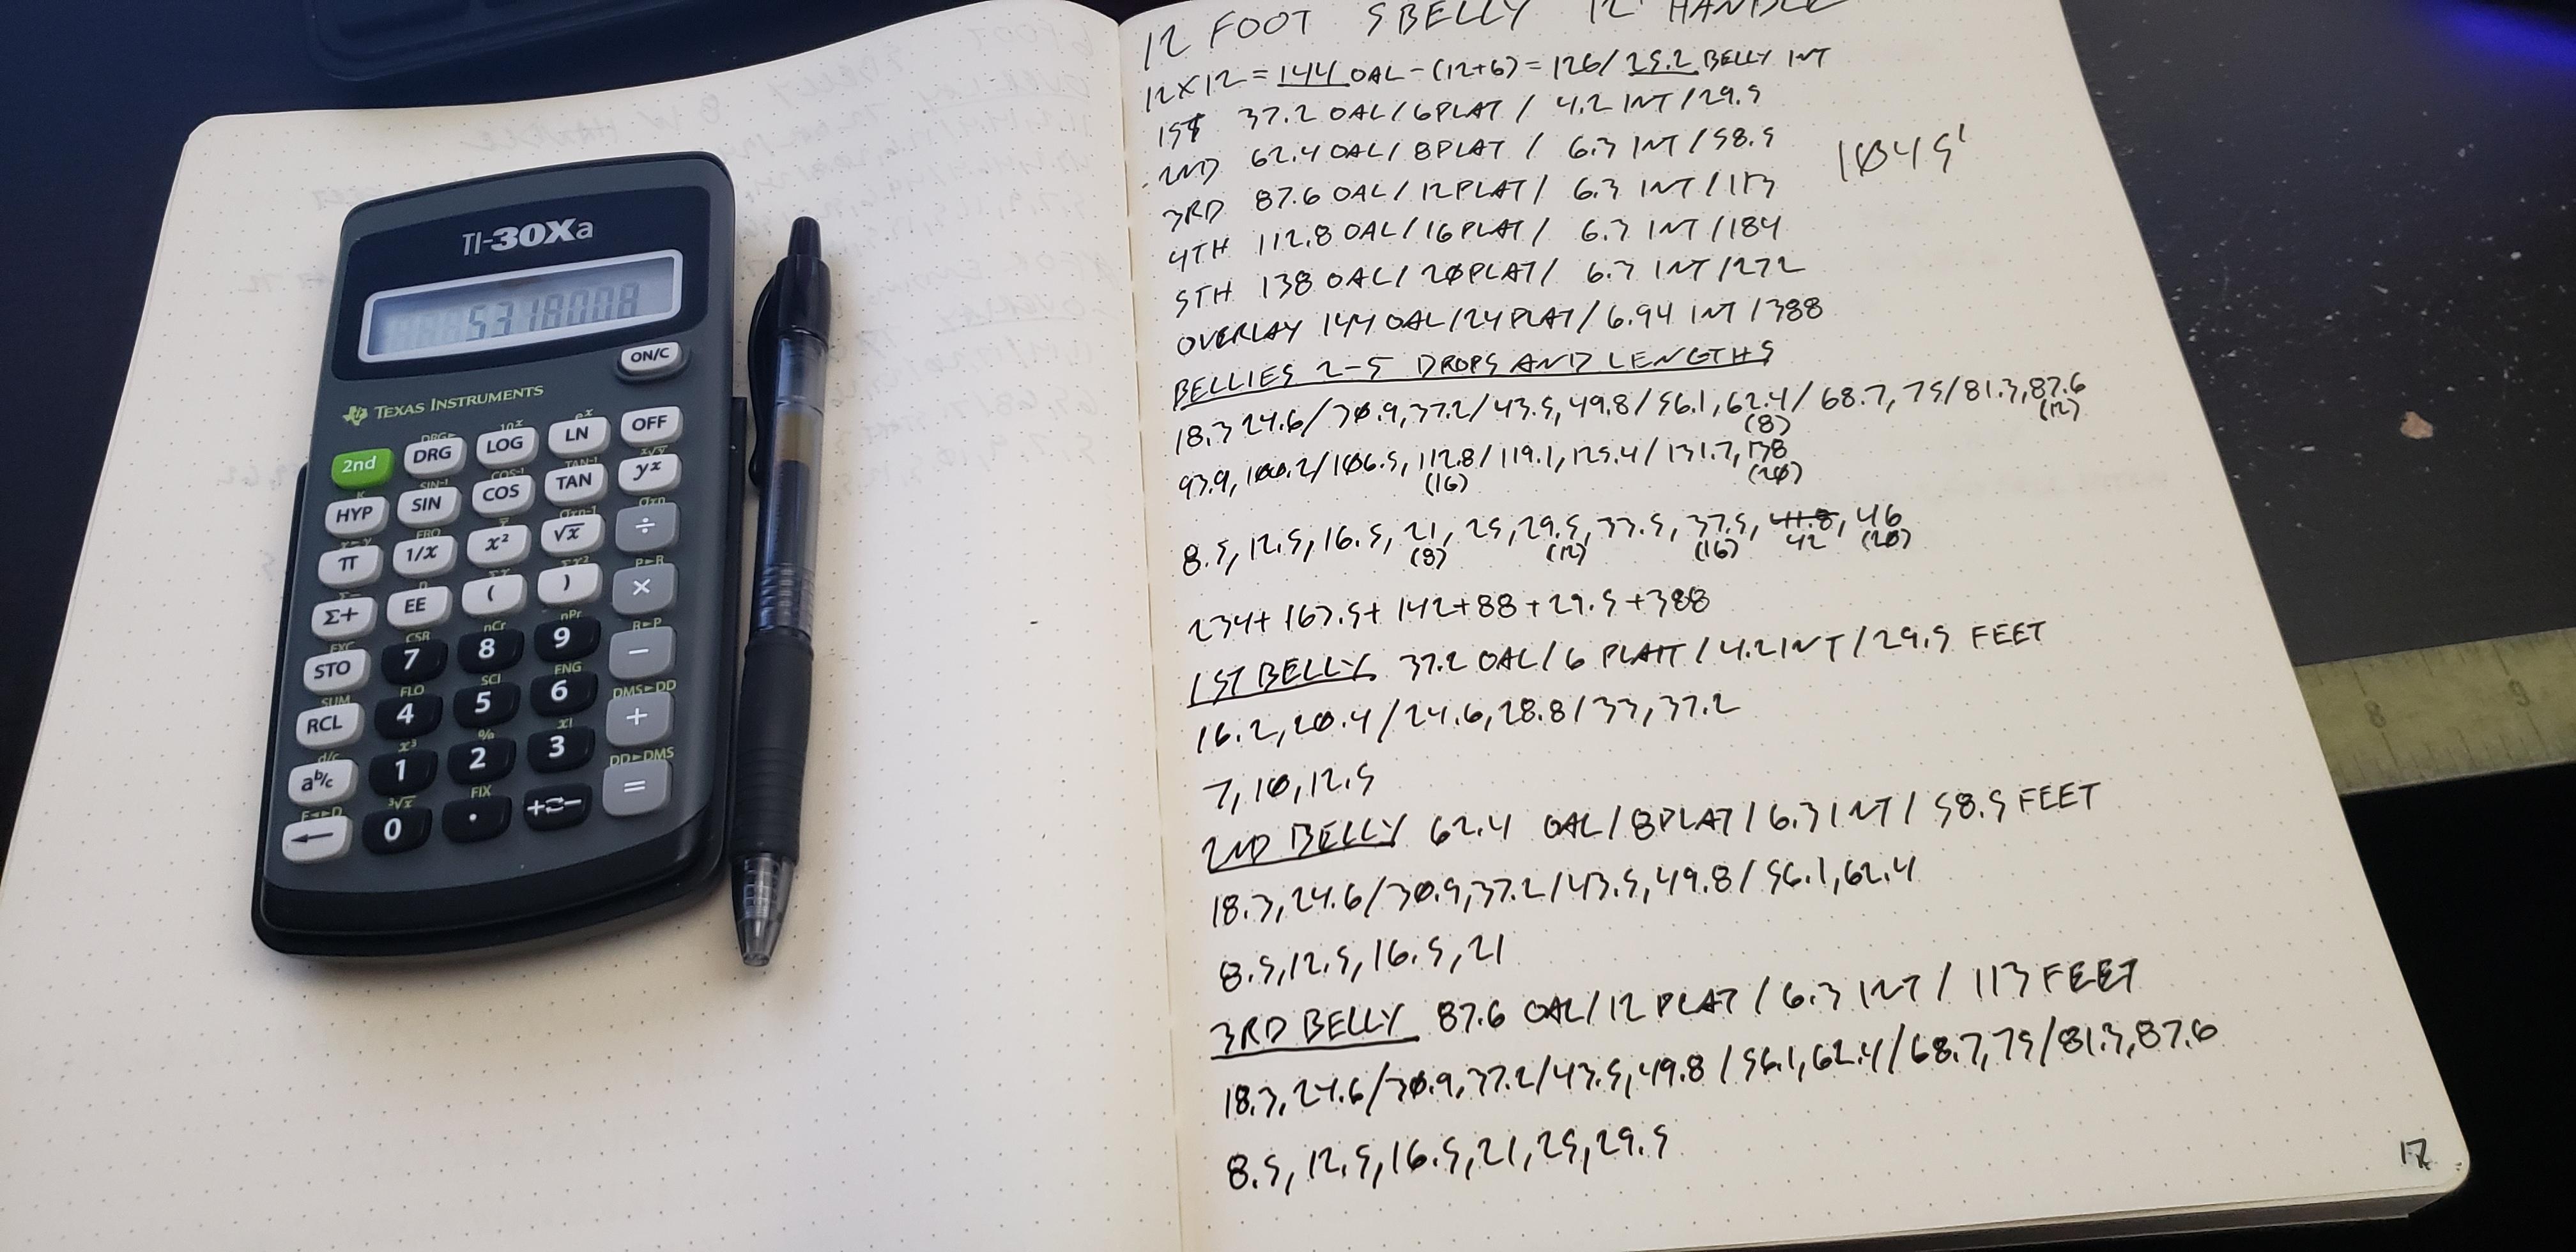 TI-30Xa
5318008
ON/C
TEXAS INSTRUMENTS
DRG► 10ˣ eˣ
2nd DRG LOG LN OFF
K SIN⁻¹ COS⁻¹ TAN⁻¹ ˣ√y
HYP SIN COS TAN yˣ
x↔y FRQ x̄ σxn-1 σxn
π 1/x x² √x ÷
Σ- n Σx Σx² P►R
Σ+ EE ( ) ×
EXC CSR nCr nPr R►P
STO 7 8 9 −
SUM FLO SCI ENG DMS►DD
RCL 4 5 6 +
d/c x³ % x! DD►DMS
aᵇ/c 1 2 3 =
F◄►D ³√x FIX
← 0 . +⇄−
12 FOOT 5 BELLY 12" HANDLE
12×12 = 144 OAL - (12+6) = 126/25.2 BELLY INT
1ST 37.2 OAL/6 PLAT / 4.2 INT/29.5
2ND 62.4 OAL/8 PLAT / 6.3 INT/58.5
1045'
3RD 87.6 OAL/12 PLAT/ 6.3 INT/113
4TH 112.8 OAL/16 PLAT/ 6.3 INT/184
5TH 138 OAL/20 PLAT/ 6.3 INT/272
OVERLAY 144 OAL/24 PLAT/6.94 INT/388
BELLIES 2-5 DROPS AND LENGTHS
18.3 24.6/30.9,37.2/43.5,49.8/56.1,62.4/68.7,75/81.3,87.6
(8) (12)
93.9,100.2/106.5,112.8/119.1,125.4/131.7,138
(16) (20)
8.5,12.5,16.5,21,25,29.5,33.5,37.5,41.8,46
(8) (12) (16) 42 (20)
234+163.5+142+88+29.5+388
1ST BELLY 37.2 OAL/6 PLAIT/4.2 INT/29.5 FEET
16.2,20.4/24.6,28.8/33,37.2
7,10,12.5
2ND BELLY 62.4 OAL/8 PLAT/6.3 INT/58.5 FEET
18.3,24.6/30.9,37.2/43.5,49.8/56.1,62.4
8.5,12.5,16.5,21
3RD BELLY 87.6 OAL/12 PLAT/6.3 INT/113 FEET
18.3,24.6/30.9,37.2/43.5,49.8/56.1,62.4/68.7,75/81.3,87.6
8.5,12.5,16.5,21,25,29.5
17
8 9